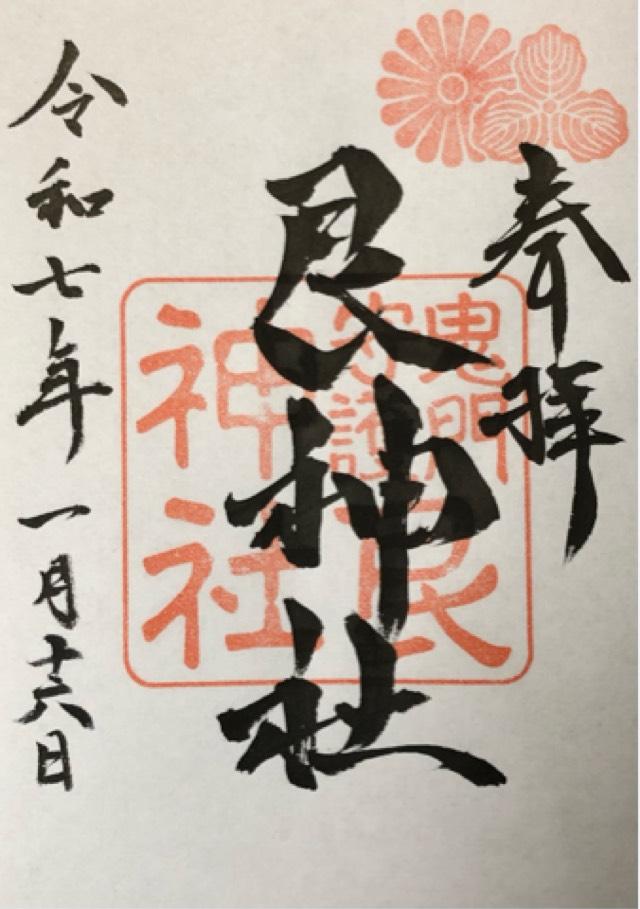 奉拝
艮神社
鬼門
守護
艮
神社
令和七年一月十六日